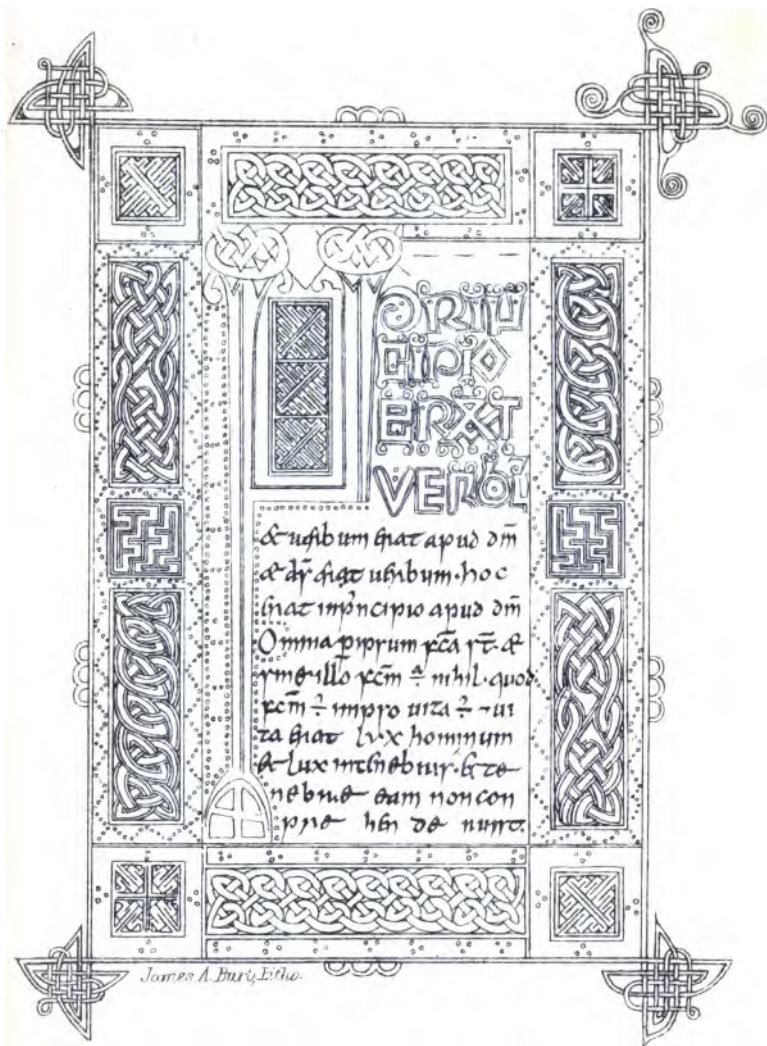 IN
PRIN
CIPIO
ERAT
VERBU
& uerbum erat apud dm̄
& ds̄ erat uerbum · hoc
erat inprincipio apud dm̄
Omnia p ipsum fc̄a st̄ · &
sine illo fcm̄ ÷ nihil · quod
fcm̄ ÷ inipso uita ÷ ⁊ ui
ta erat lux hominum
& lux intenebris · & te
nebre eam non con
pre hen de runt.
James A. Burt, Litho.